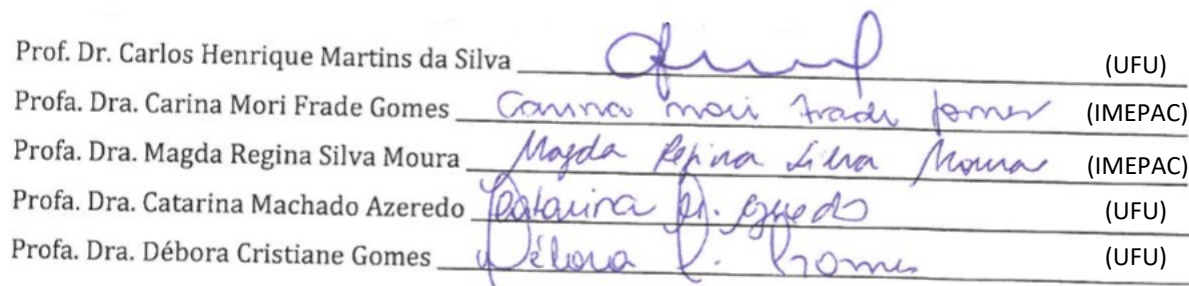 Prof. Dr. Carlos Henrique Martins da Silva (UFU)
Profa. Dra. Carina Mori Frade Gomes Carina Mori Frade Gomes (IMEPAC)
Profa. Dra. Magda Regina Silva Moura Magda Regina Silva Moura (IMEPAC)
Profa. Dra. Catarina Machado Azeredo Catarina M. Azeredo (UFU)
Profa. Dra. Débora Cristiane Gomes Débora C. Gomes (UFU)